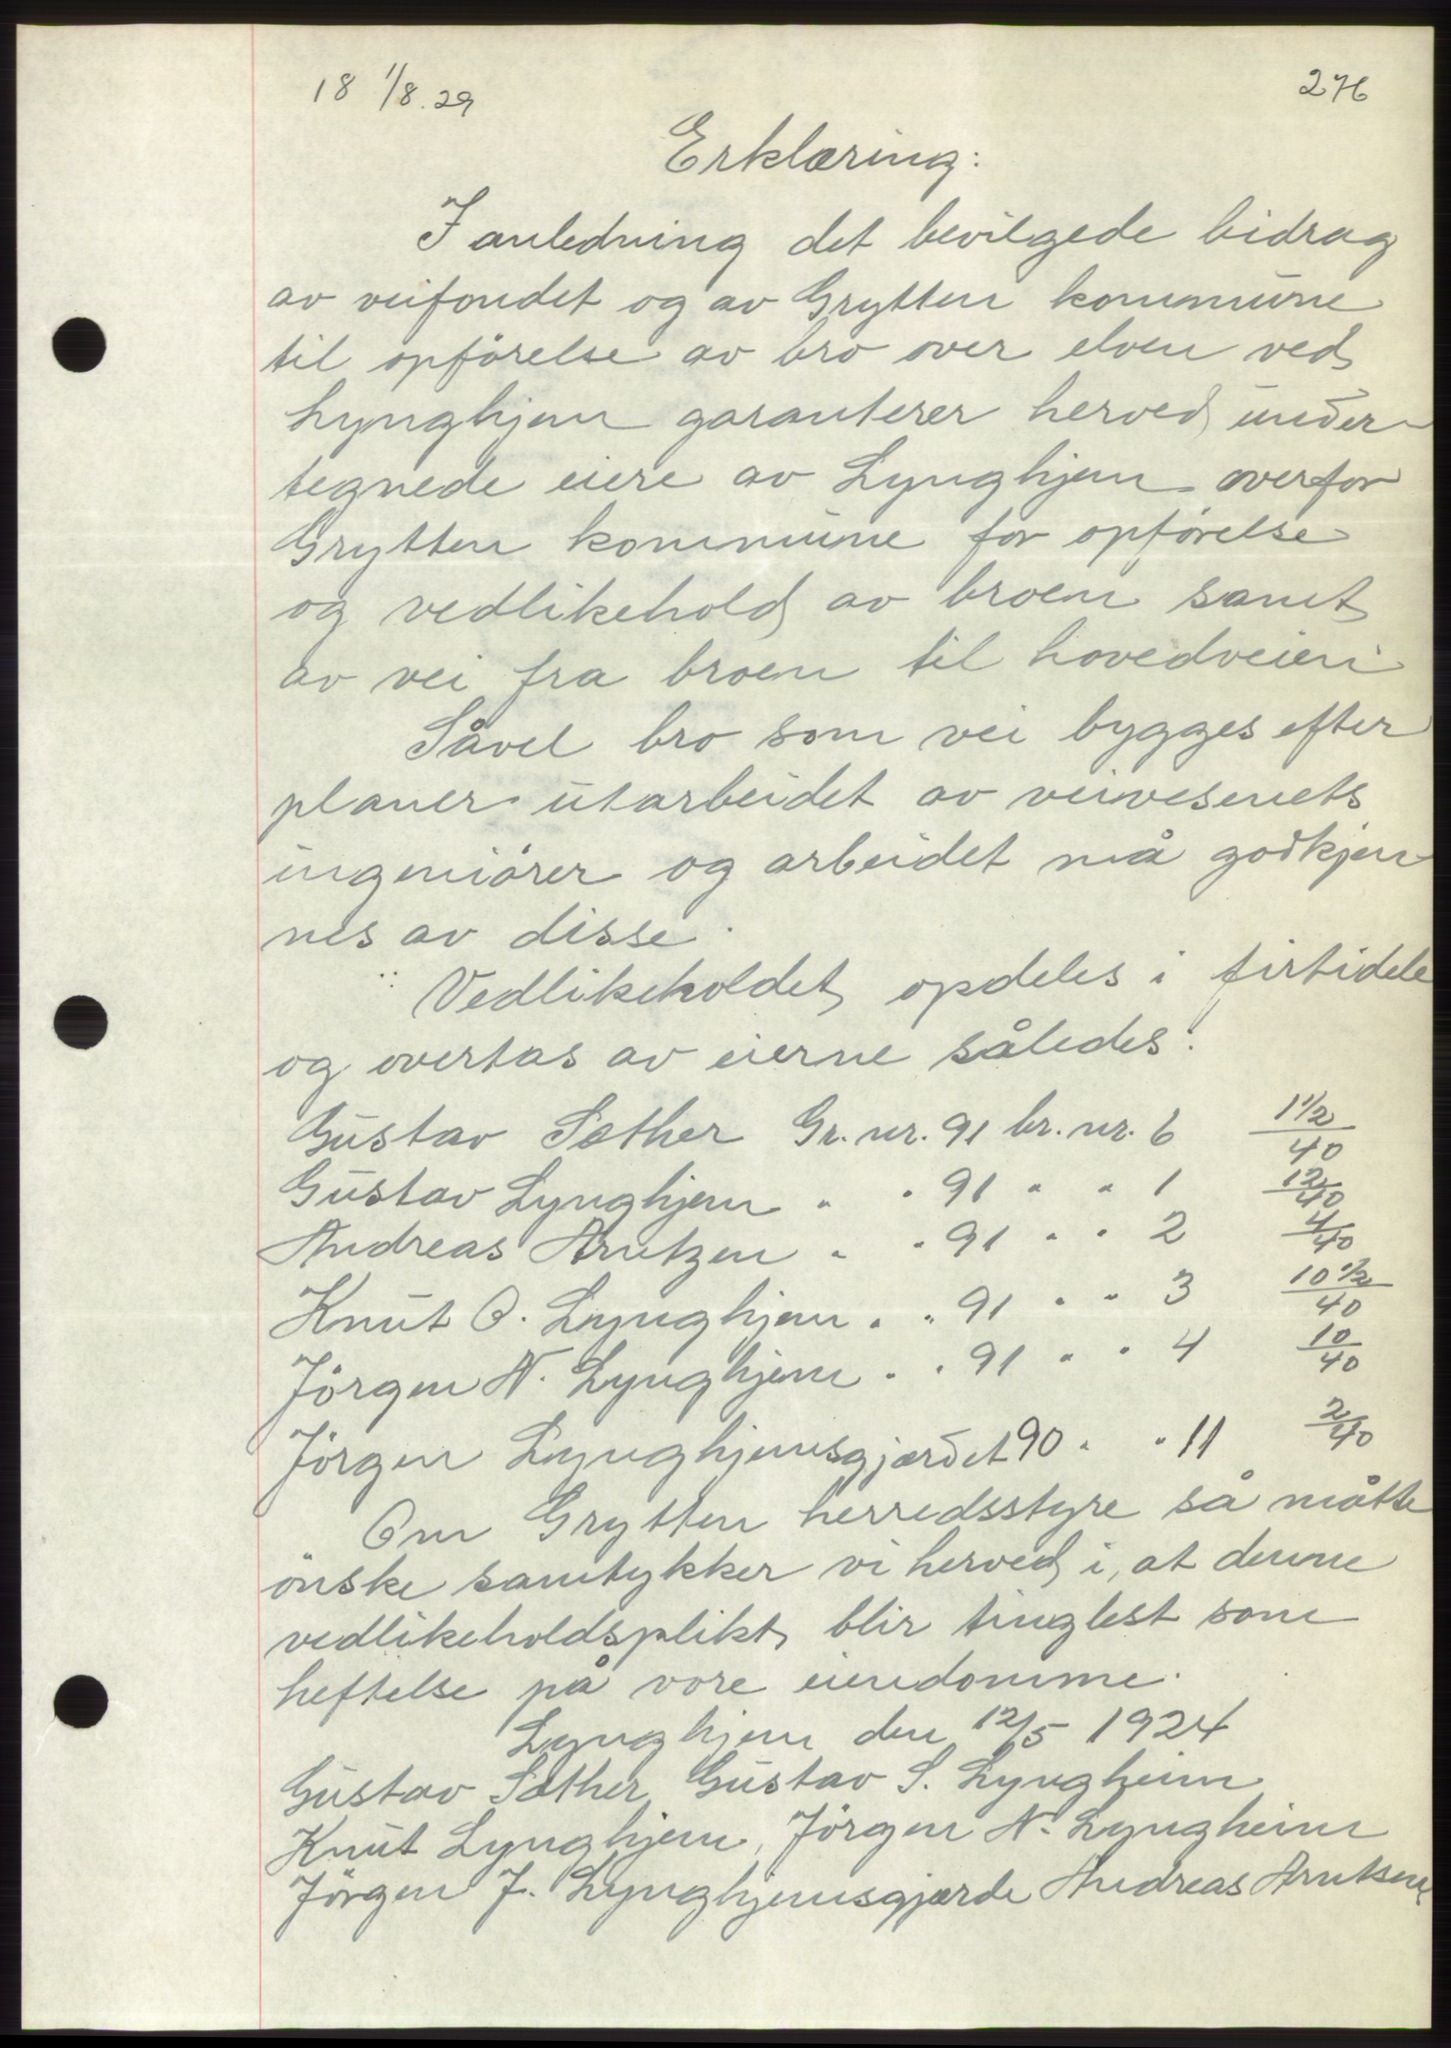 18 1/8.29
276
Erklæring:
I anledning det bevilgede bidrag
av veifondet og av Grytten kommune
til opförelse av bro over elven ved
Lynghjem garanterer herved under-
tegnede eiere av Lynghjem overfor
Grytten kommune for opförelse
og vedlikehold av broen samt
av vei fra broen til hovedveien
Såvel bro som vei bygges efter
planer utarbeidet av veivesenets
ingeniörer og arbeidet må godkjen-
nes av disse.
Vedlikeholdet opdeles i firtidele
og overtas av eierne således:
Gustav Sæther Gr. nr. 91 br. nr. 6 1 1/2/40
Gustav Lynghjem " " 91 " " 1 12/40
Andreas Arntzen " " 91 " " 2 4/40
Knut O. Lynghjem " " 91 " " 3 10 1/2/40
Jörgen N. Lynghjem " " 91 " " 4 10/40
Jörgen Lynghjemsgjærdet 90 " " 11 2/40
Om Grytten herredsstyre så måtte
önske samtykker vi herved i, at denne
vedlikeholdsplikt blir tinglest som
heftelse på vore eiendomme.
Lynghjem den 12/5 1924
Gustav Sæther Gustav S. Lyngheim
Knut Lynghjem, Jörgen N. Lyngheim
Jörgen J. Lynghjemsgjærde Andreas Arntsen